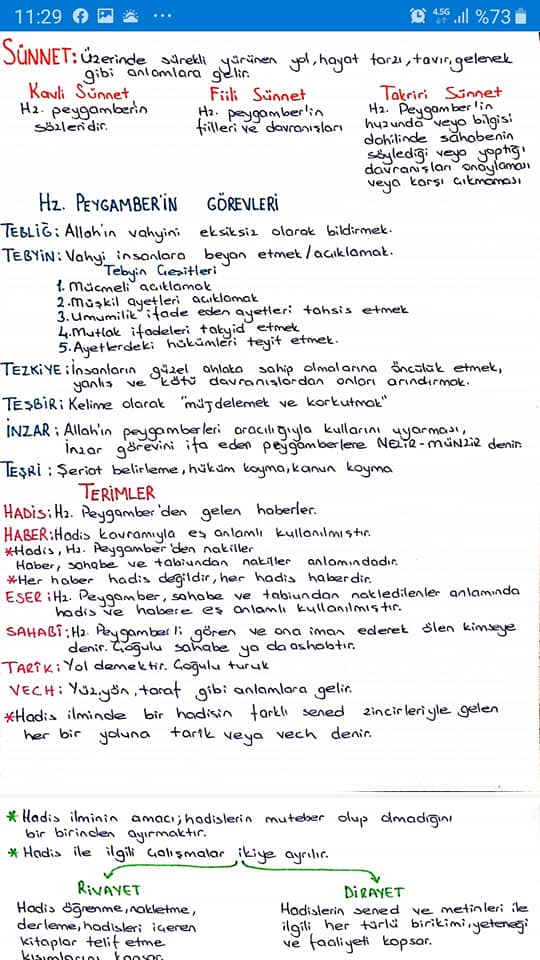 11:29
4.5G
%73
SÜNNET: Üzerinde sürekli yürünen yol, hayat tarzı, tavır, gelenek
gibi anlamlara gelir.
Kavli Sünnet
Hz. peygamberin
sözleridir.
Fiili Sünnet
Hz. peygamber'in
fiilleri ve davranışları
Takriri Sünnet
Hz. Peygamber'in
huzunda veya bilgisi
dahilinde sahabenin
söylediği veya yaptığı
davranışları onaylaması
veya karşı çıkmaması
HZ. PEYGAMBER'İN GÖREVLERİ
TEBLİĞ: Allah'ın vahyini eksiksiz olarak bildirmek.
TEBYİN: Vahyi insanlara beyan etmek/açıklamak.
Tebyin Çeşitleri
1. Mücmeli açıklamak
2. Müşkil ayetleri açıklamak
3. Umumilik ifade eden ayetleri tahsis etmek
4. Mutlak ifadeleri takyid etmek
5. Ayetlerdeki hükümleri teyit etmek.
TEZKİYE: İnsanların güzel ahlaka sahip olmalarına öncülük etmek,
yanlış ve kötü davranışlardan onları arındırmak.
TEŞBİR: Kelime olarak "müjdelemek ve korkutmak"
İNZAR: Allah'ın peygamberleri aracılığıyla kullarını uyarması,
İnzar görevini ifa eden peygamberlere NEZİR-MÜNZİR denir.
TEŞRİ: Şeriat belirleme, hüküm koyma, kanun koyma
TERİMLER
HADİS: Hz. Peygamber'den gelen haberler.
HABER: Hadis kavramıyla eş anlamlı kullanılmıştır.
*Hadis, Hz. Peygamber'den nakiller
Haber, sahabe ve tabiundan nakiller anlamındadır.
*Her haber hadis değildir, her hadis haberdir.
ESER: Hz. Peygamber, sahabe ve tabiundan nakledilenler anlamında
hadis ve habere eş anlamlı kullanılmıştır.
SAHABİ: Hz. Peygamber'i gören ve ona iman ederek ölen kimseye
denir. Çoğulu sahabe ya da ashabtır.
TARİK: Yol demektir. Çoğulu turuk
VECH: Yüz, yön, taraf gibi anlamlara gelir.
*Hadis ilminde bir hadisin farklı sened zincirleriyle gelen
her bir yoluna tarik veya vech denir.
* Hadis ilminin amacı; hadislerin muteber olup olmadığını
bir birinden ayırmaktır.
* Hadis ile ilgili çalışmalar ikiye ayrılır.
RİVAYET
Hadis öğrenme, nakletme,
derleme, hadisleri içeren
kitaplar telif etme
kısımlarını kapsar.
DİRAYET
Hadislerin sened ve metinleri ile
ilgili her türlü birikimi, yeteneği
ve faaliyeti kapsar.